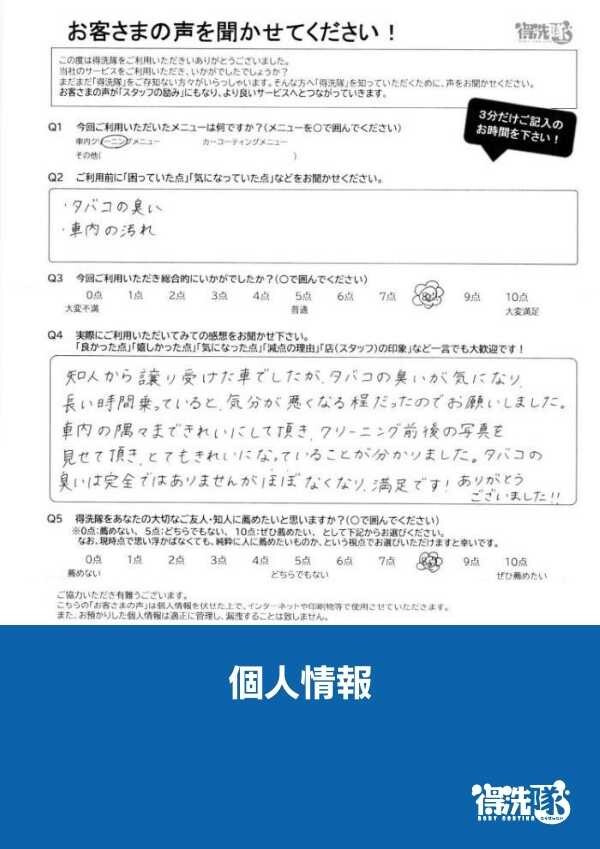 お客さまの声を聞かせてください！
得洗隊
この度は得洗隊をご利用いただきいありがとうございました。
当社のサービスをご利用いただき、いかがでしたでしょうか？
まだまだ「得洗隊」をご存知ない方々がいらっしゃいます。そんな方へ「得洗隊」を知っていただくために、声をお聞かせください。
お客さまの声が「スタッフの励み」にもなり、より良いサービスへとつながっていきます。
3分だけご記入の
お時間を下さい！
Q1 今回ご利用いただいたメニューは何ですか？（メニューを〇で囲んでください）
車内クリーニングメニュー カーコーティングメニュー
その他( )
Q2 ご利用前に「困っていた点」「気になっていた点」などをお聞かせください。
・タバコの臭い
・車内の汚れ
Q3 今回ご利用いただき総合的にいかがでしたか？（〇で囲んでください）
0点 1点 2点 3点 4点 5点 6点 7点 8点 9点 10点
大変不満 普通 大変満足
Q4 実際にご利用いただいてみての感想をお聞かせ下さい。
「良かった点」「嬉しかった点」「気になった点」「減点の理由」「店（スタッフ）の印象」など一言でも大歓迎です！
知人から譲り受けた車でしたが、タバコの臭いが気になり、
長い時間乗っていると、気分が悪くなる程だったのでお願いしました。
車内の隅々まできれいにして頂き、クリーニング前後の写真を
見せて頂き、とてもきれいになっていることが分かりました。タバコの
臭いは完全ではありませんがほぼなくなり、満足です！ありがとう
ございました！！
Q5 得洗隊をあなたの大切なご友人・知人に薦めたいと思いますか？（〇で囲んでください）
※0点：薦めない、5点：どちらでもない、10点：ぜひ薦めたい、として下記からお選びください。
なお、現時点で思い浮かばなくても、純粋に人に薦めたいものか、という視点でお選びいただけますと幸いです。
0点 1点 2点 3点 4点 5点 6点 7点 8点 9点 10点
薦めない どちらでもない ぜひ薦めたい
ご協力いただき有難うございます。
こちらの「お客さまの声」は個人情報を伏せた上で、インターネットや印刷物等で使用させていただきます。
また、お預かりした個人情報は適正に管理し、漏洩することは致しません。
個人情報
得洗隊
BODY COATING
とくせんたい